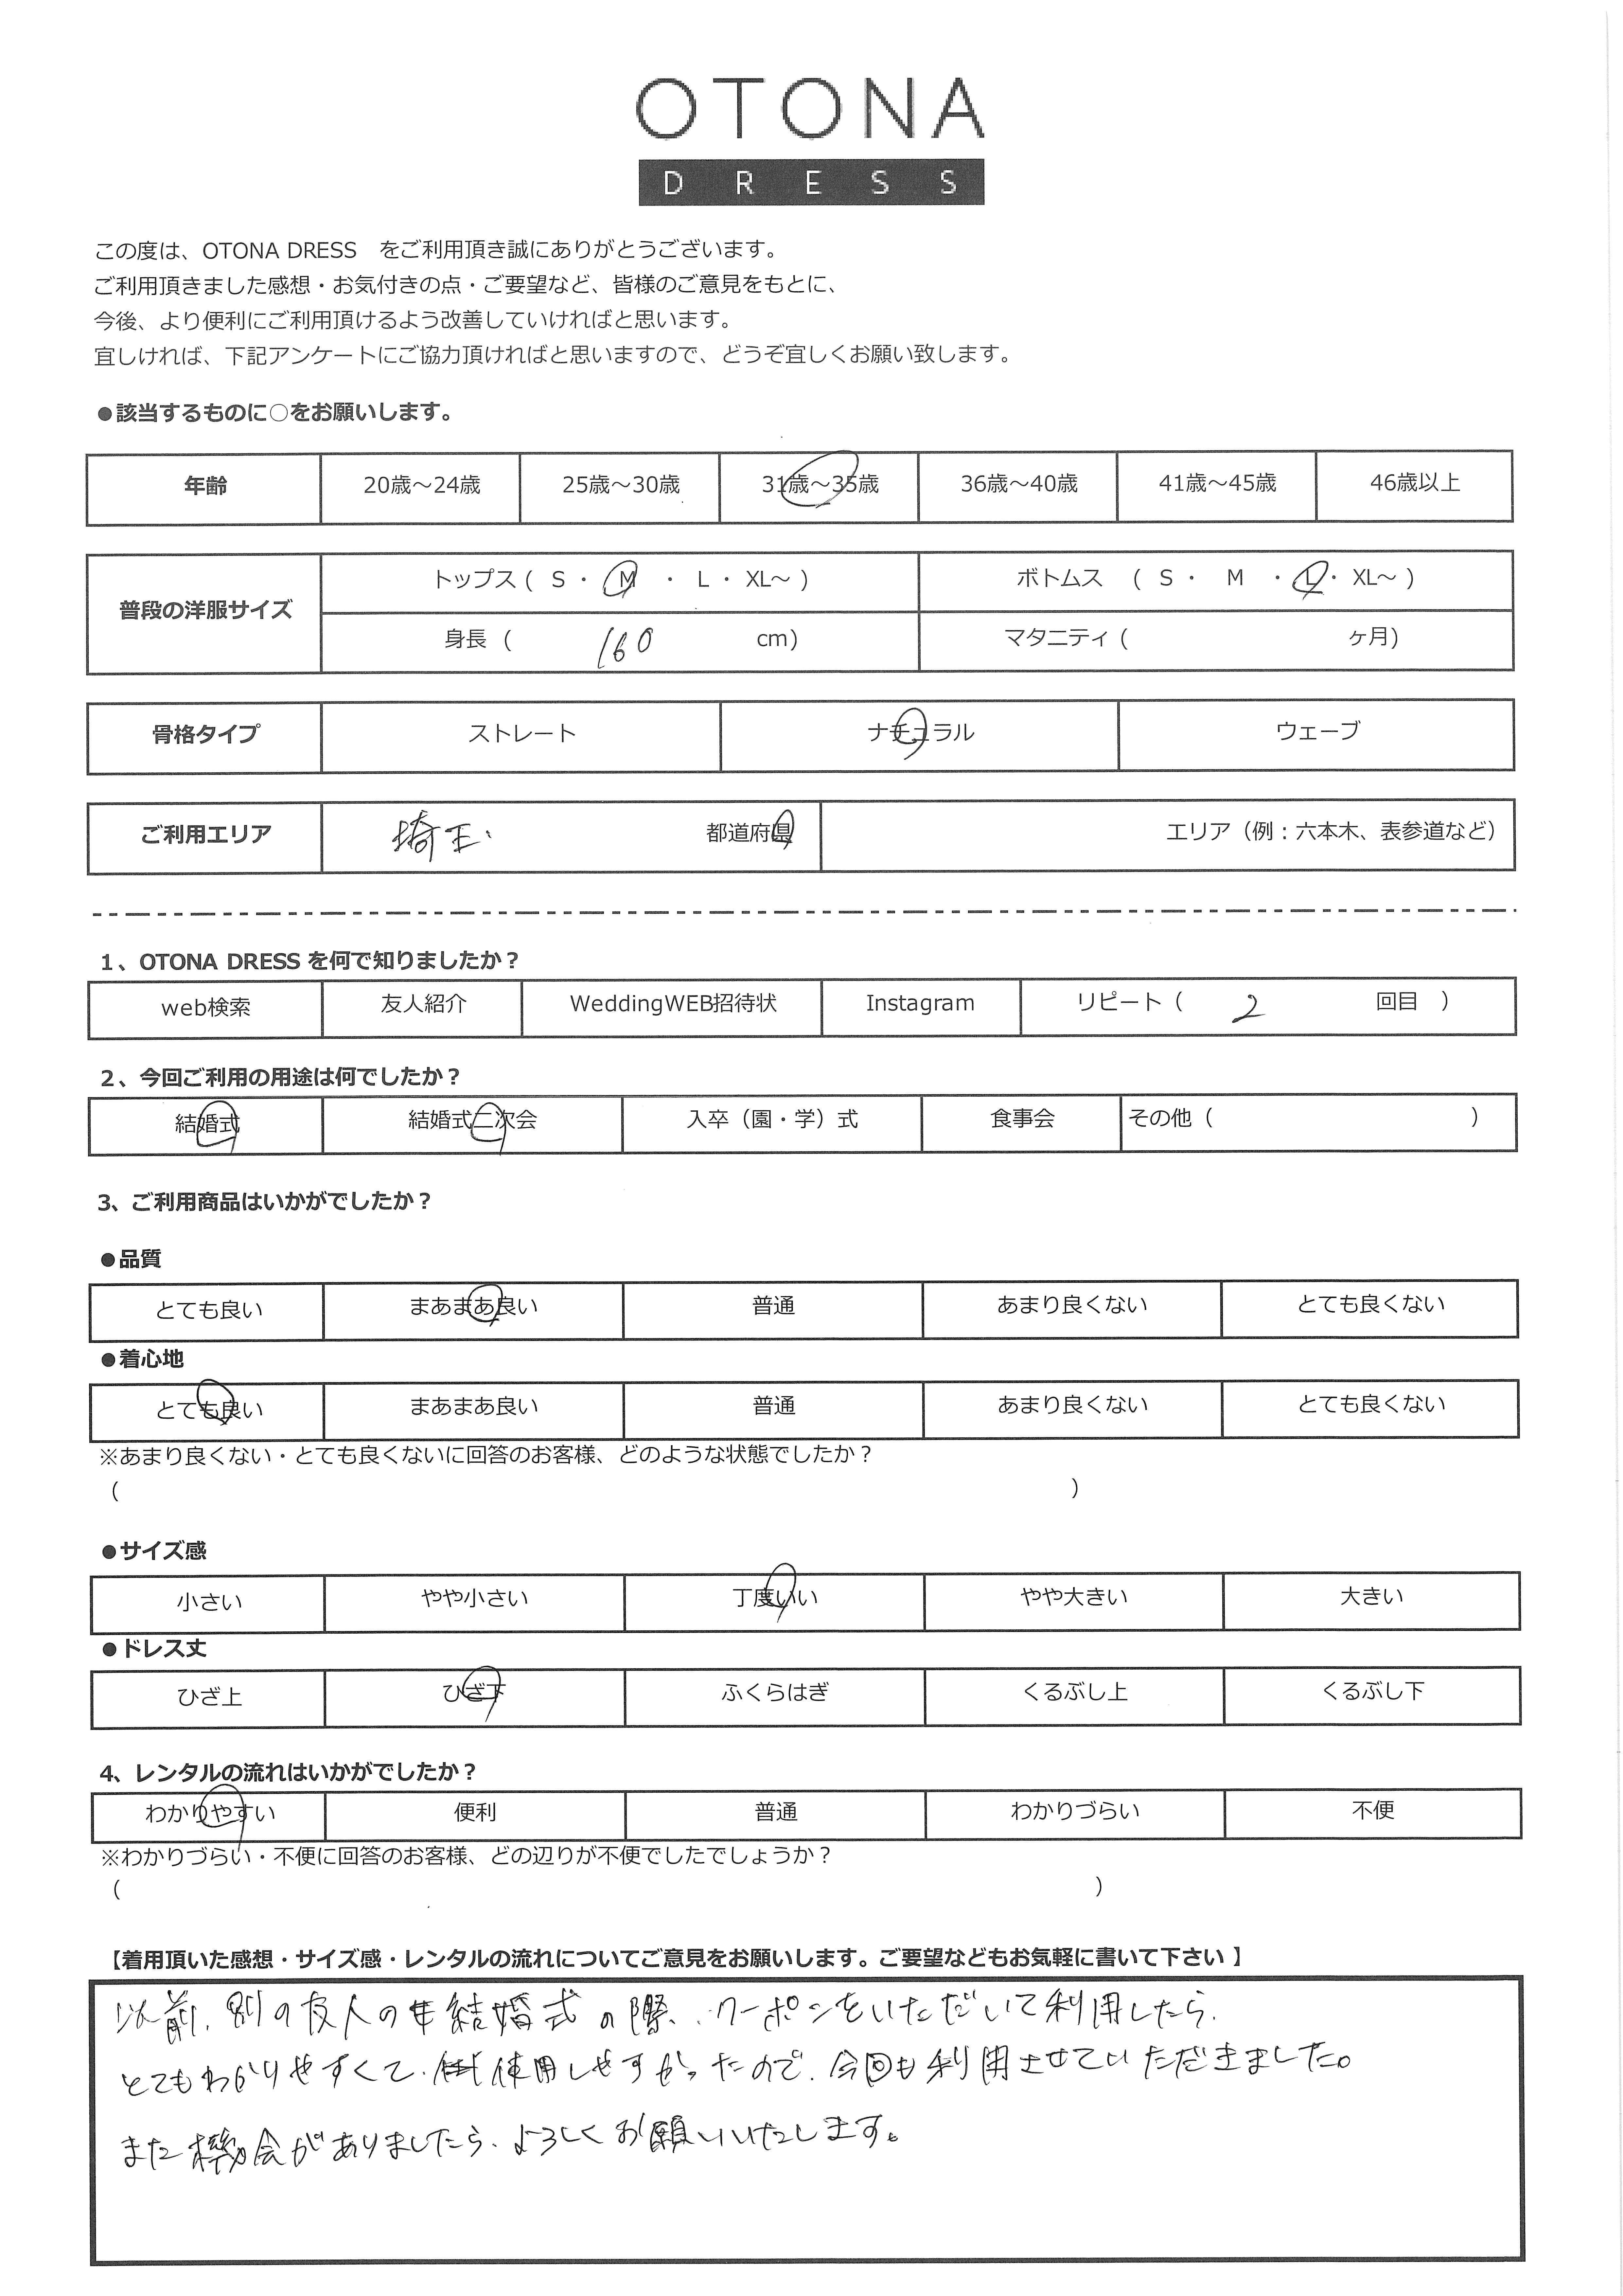 OTONA
DRESS
この度は、OTONA DRESS　をご利用頂き誠にありがとうございます。
ご利用頂きました感想・お気付きの点・ご要望など、皆様のご意見をもとに、
今後、より便利にご利用頂けるよう改善していければと思います。
宜しければ、下記アンケートにご協力頂ければと思いますので、どうぞ宜しくお願い致します。
●該当するものに○をお願いします。
年齢 20歳～24歳 25歳～30歳 31歳～35歳 36歳～40歳 41歳～45歳 46歳以上
普段の洋服サイズ
トップス ( S ・ M ・ L ・ XL～ ) ボトムス ( S ・ M ・ L ・ XL～ )
身長 ( 160 cm) マタニティ ( ヶ月)
骨格タイプ ストレート ナチュラル ウェーブ
ご利用エリア 埼玉 都道府県 エリア（例：六本木、表参道など）
1、OTONA DRESS を何で知りましたか？
web検索 友人紹介 WeddingWEB招待状 Instagram リピート（ 2 回目 ）
2、今回ご利用の用途は何でしたか？
結婚式 結婚式二次会 入卒（園・学）式 食事会 その他（ ）
3、ご利用商品はいかがでしたか？
●品質
とても良い まあまあ良い 普通 あまり良くない とても良くない
●着心地
とても良い まあまあ良い 普通 あまり良くない とても良くない
※あまり良くない・とても良くないに回答のお客様、どのような状態でしたか？
（ ）
●サイズ感
小さい やや小さい 丁度いい やや大きい 大きい
●ドレス丈
ひざ上 ひざ下 ふくらはぎ くるぶし上 くるぶし下
4、レンタルの流れはいかがでしたか？
わかりやすい 便利 普通 わかりづらい 不便
※わかりづらい・不便に回答のお客様、どの辺りが不便でしたでしょうか？
（ ）
【着用頂いた感想・サイズ感・レンタルの流れについてご意見をお願いします。ご要望などもお気軽に書いて下さい 】
以前、別の友人の結婚式の際、クーポンをいただいて利用したら、
とてもわかりやすくて、使用しやすかったので、今回も利用させていただきました。
また機会がありましたら、よろしくお願いいたします。